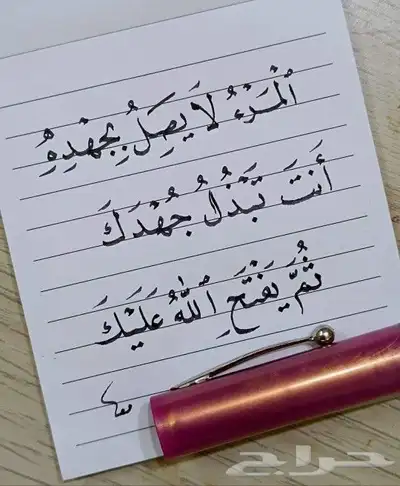 ٱلْمَرْءُ لَا يَصِلُ بِجُهْدِهِ
أَنتَ تَبْذُلُ جُهْدَكَ
ثُمَّ يَفْتَحِ ٱللَّهُ عَلَيْكَ
حراج